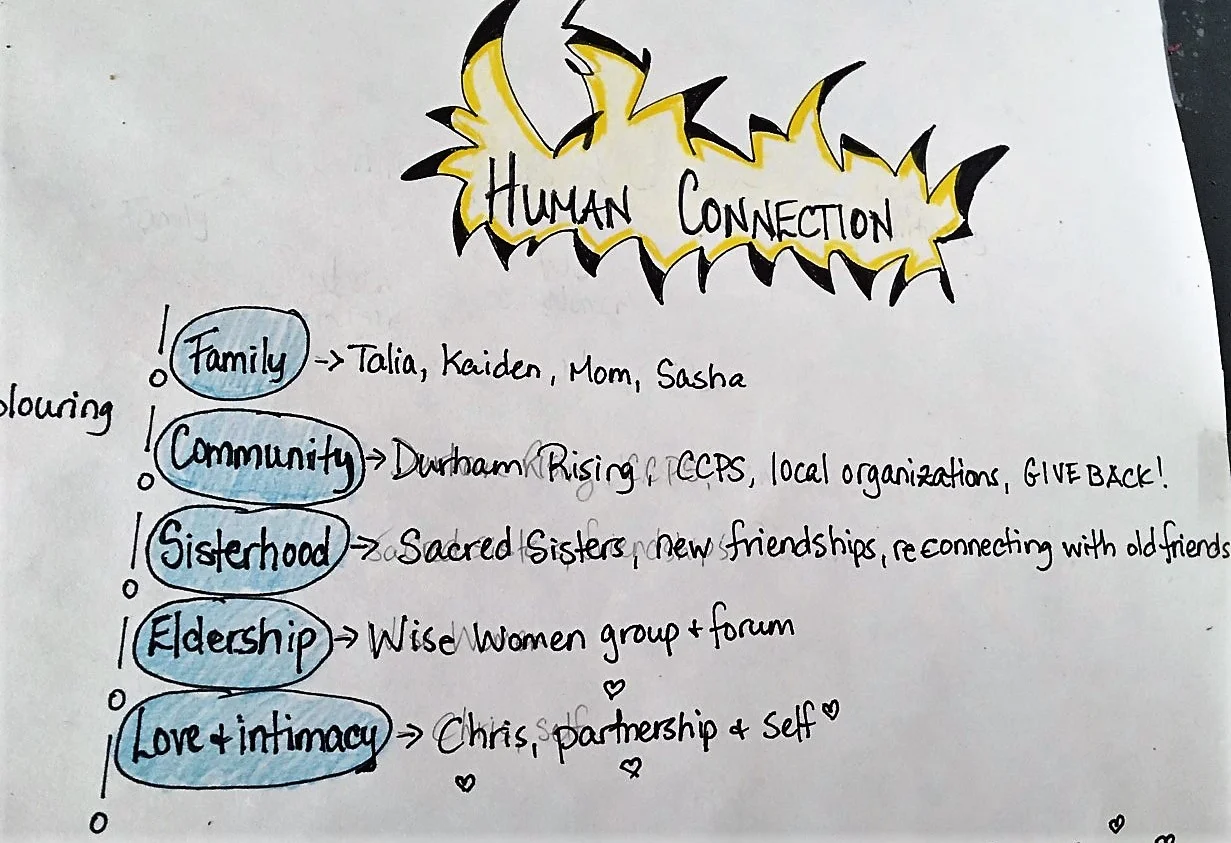 HUMAN CONNECTION
Family -> Talia, Kaiden, Mom, Sasha
Community -> Durham Rising, CCPS, local organizations, GIVE BACK!
Sisterhood -> Sacred Sisters, new friendships, reconnecting with old friends
Eldership -> Wise Women group + forum
Love + intimacy -> Chris, partnership & Self